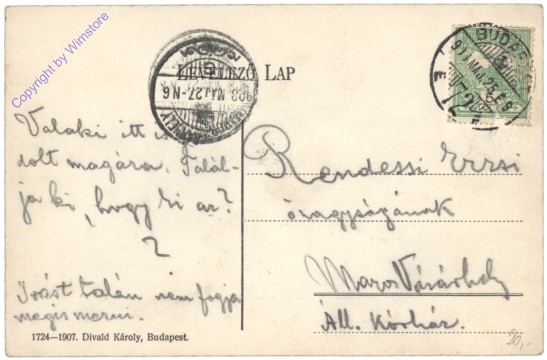 Copyright by Wimstore
LEVELEZŐ LAP
BUDAPEST
908 MÁJ. 27. N6
Valaki itt is
dolt magára. Talál-
ja ki, hogy ki az?
?
Irást talán nem fogja
megismerni.
Rendessi Erzsi
őnagyságának
Maros Vásárhely
Áll. Kórház.
1724—1907. Divald Károly, Budapest.
20,-